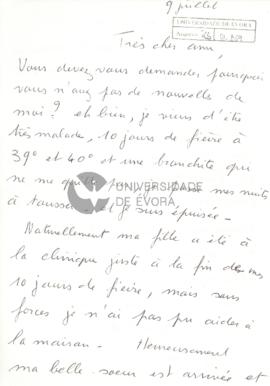 9 juillet
UNIVERSIDADE DE ÉVORA
Très cher ami,
Vous devez vous demander pourquoi
vous n'avez pas de nouvelles de
moi? eh bien, je viens d'être
très malade, 10 jours de fièvre à
39° et 40° et une bronchite qui
ne me quitte mes nuits
à tousser et je suis épuisée -
UNIVERSIDADE
DE ÉVORA
Naturellement ma fille a été à
la clinique juste à la fin de mes
10 jours de fièvre, mais sans
forces je n'ai pas pu aider à
la maison - Heureusement
ma belle soeur est arrivée et